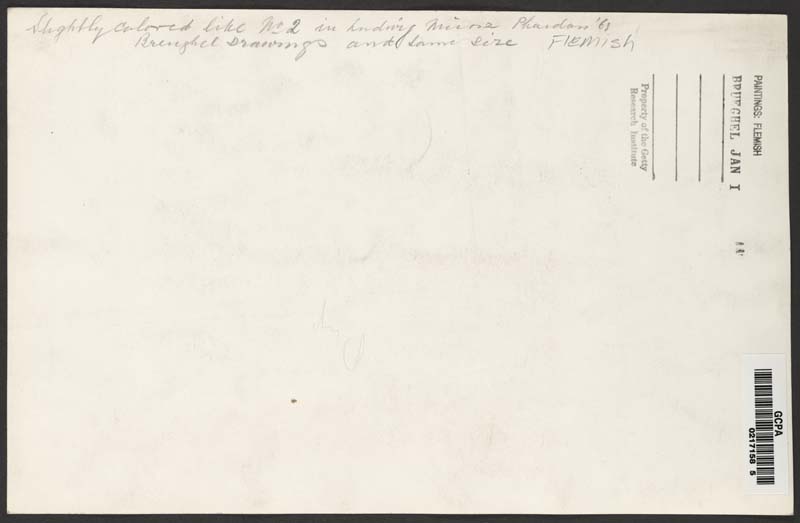 Slightly colored like No 2 in Ludwig Münz Phaidon '61
Breughel Drawings and same size FLEMISH
PAINTINGS: FLEMISH
BRUEGHEL JAN I
Property of the Getty
Research Institute
GCPA
0217158 5